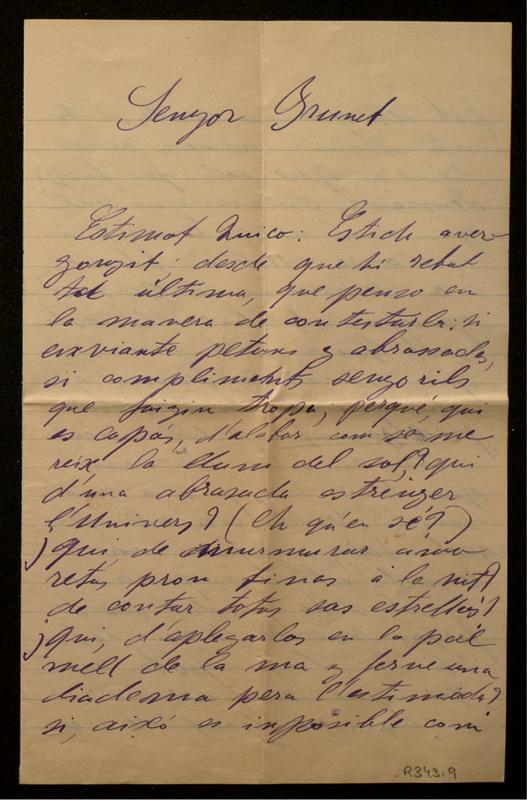 Senyor Brunet
Estimat Quico: Estich aver-
gonyit; desde que hi rebut
ta última, que penso en
la manera de contestarla; si
enviante petons y abrassadas,
si compliments senyorils
que faigin tropa, perqué, qui
es capás, d'alabar com se me
reix la llum del sol? qui
d'una abrasada estrenyer
l'Univers? (Eh qu'en sé?)
¡qui, de murmurar amo
retas prou finas á la nit?
de contar totas sas estrellas?
¡qui, d'aplegarlas en lo pal
mell de la ma y ferne una
diadema pera l'estimada?
si, aixó es imposible com
R343.9